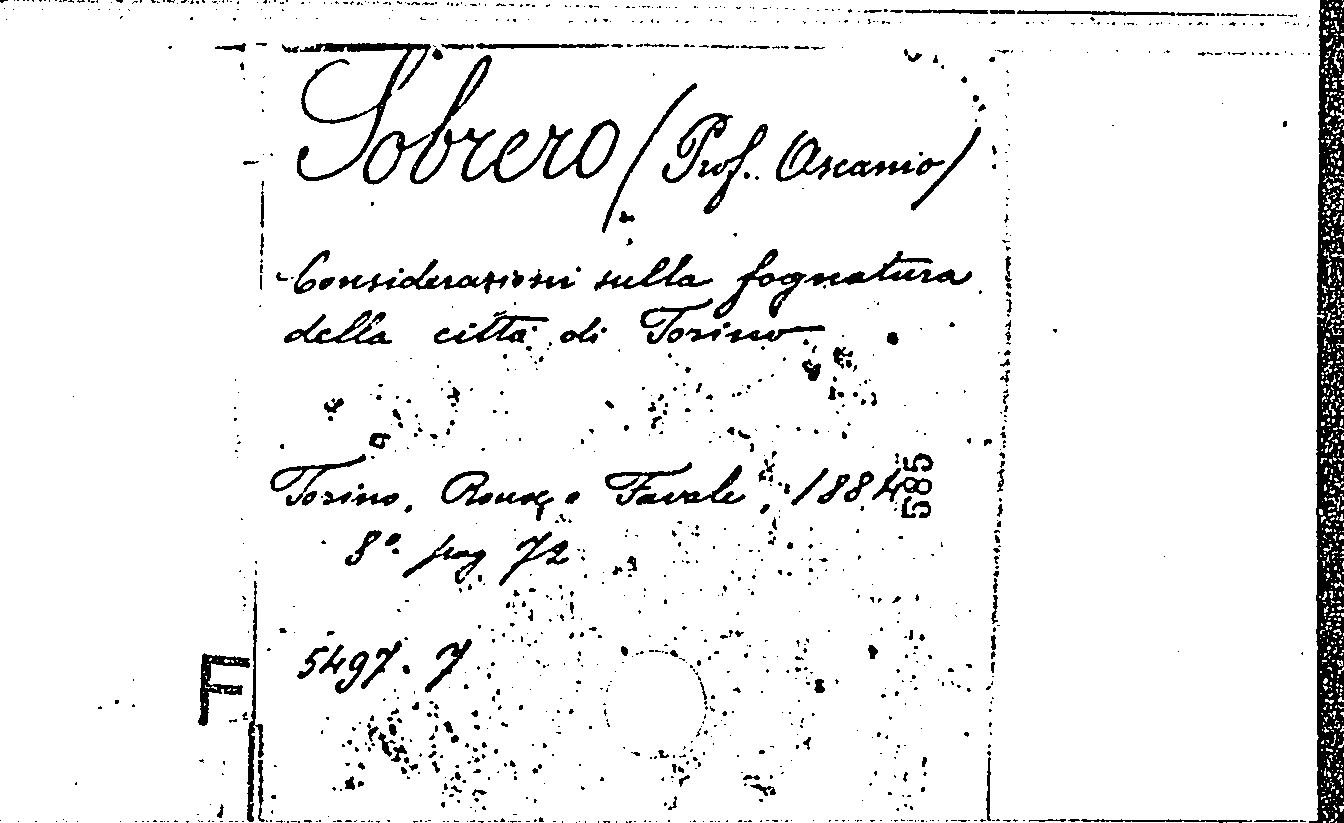 Sobrero (Prof. Ascanio)
Considerazioni sulla fognatura
della città di Torino
Torino, Roux e Favale, 1884
585
8°. pag 72
5497. 7
F